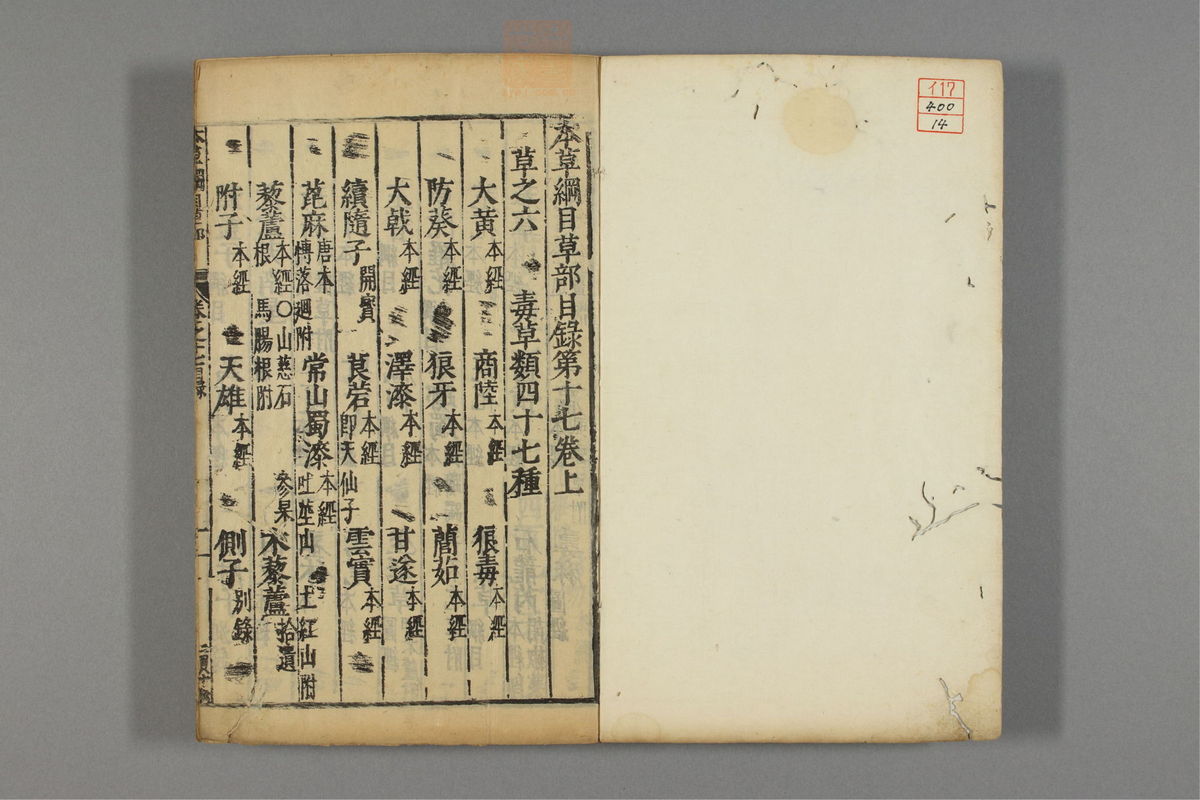 イ17
400
14
本草綱目草部目錄第十七卷上
草之六 毒草類四十七種
大黃本經 商陸本經 狼毒本經
防葵本經 狼牙本經 䕡茹本經
大戟本經 澤漆本經 甘遂本經
續隨子開寶 莨菪本經即天仙子 雲實本經
蓖麻唐本博落廻附 常山蜀漆本經吐 山 土紅山附
藜蘆本經〇山慈石 參果根 馬腸根附 木藜蘆拾遺
附子本經 天雄本經 側子別錄
本草綱目草部 卷之十七目錄